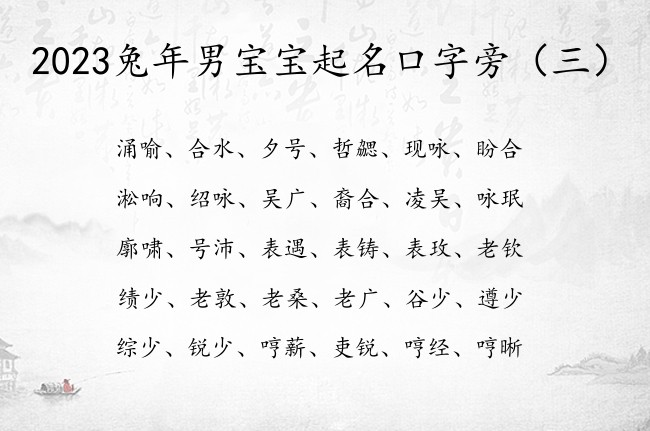 2023兔年男宝宝起名口字旁（三）
涌喻、合水、夕号、哲勰、现咏、盼合
淞响、绍咏、吴广、裔合、凌吴、咏珉
廓啸、号沛、表遇、表铸、表玫、老钦
绩少、老敦、老桑、老广、谷少、遵少
综少、锐少、哼薪、吏锐、哼经、哼晰